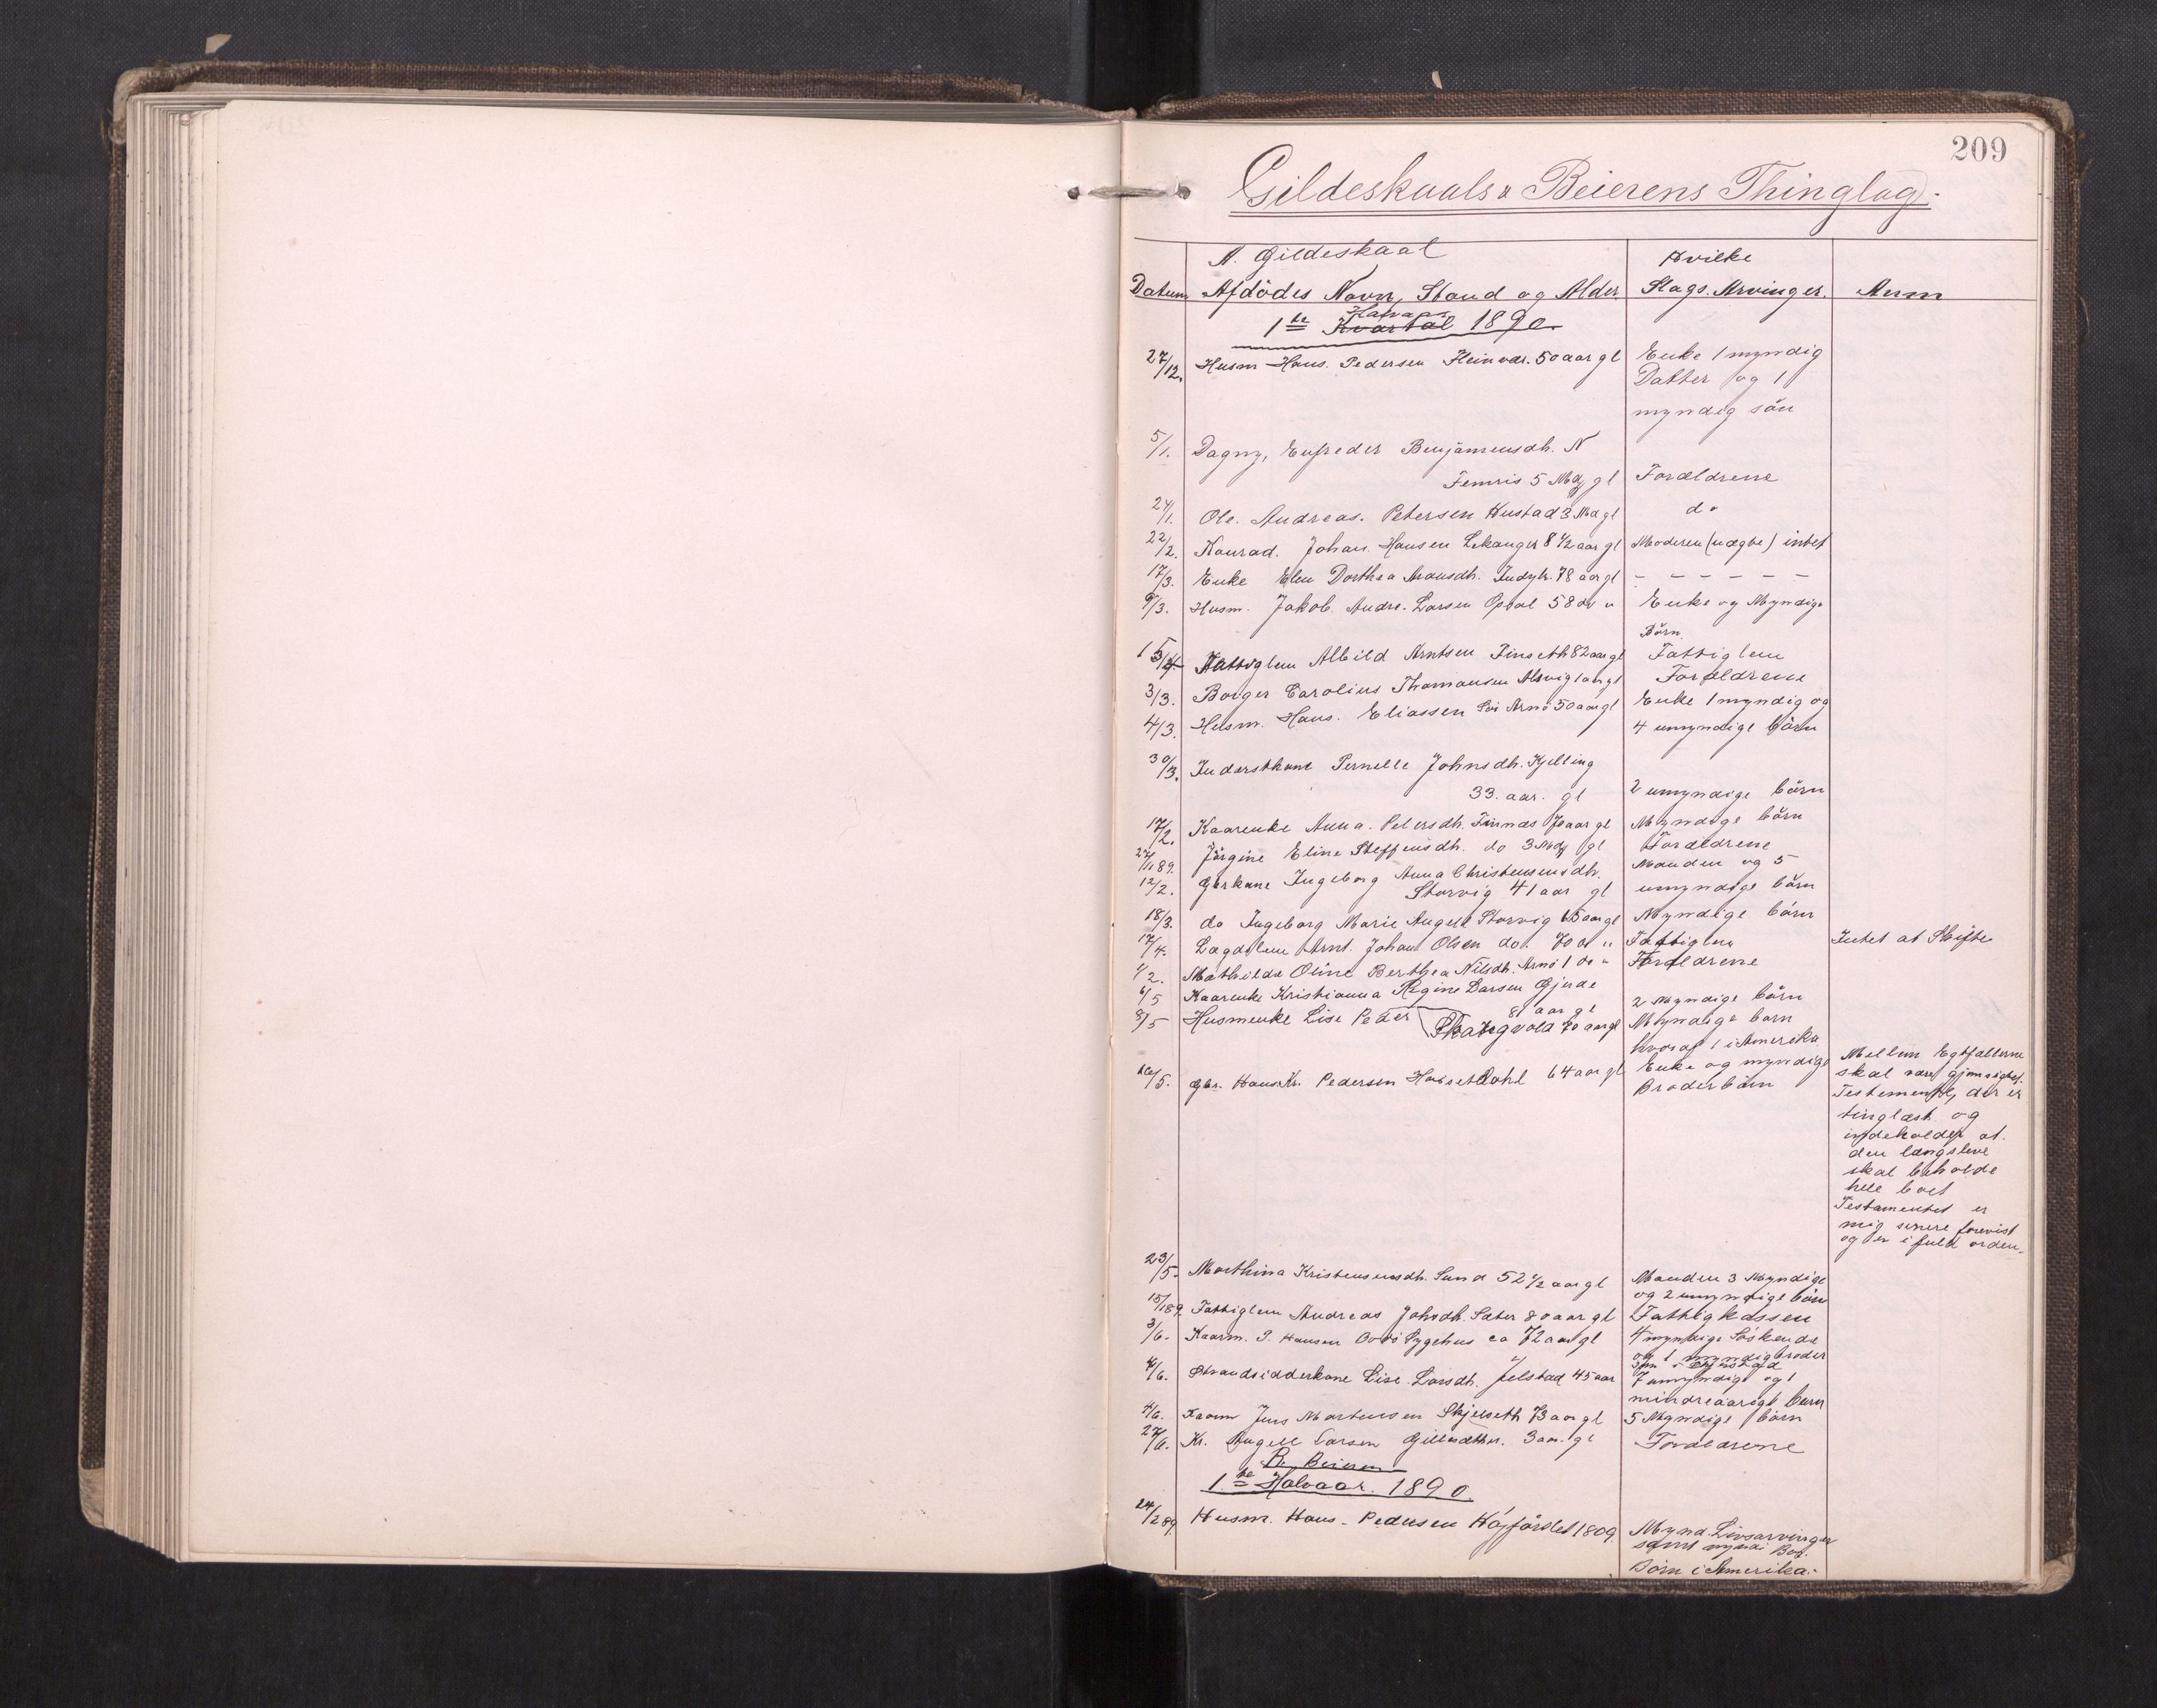 209
Gildeskaals & Beierens Thinglag.
A. Gildeskaal
Hvilke
Datum Afdödes Navn, Stand og Alder. Slags. Arvinger. Anm
Halvaar
1ste Kvartal 1890.
27/12. Husm Hans. Pedersen Fleinvær. 50 aar gl Enke 1 myndig
Datter og 1
myndig sön
5/1. Dagny, Enfreder Benjaminsdh. N
Femris 5 Mdr gl Forældrene
24/1. Ole. Andreas. Petersen Hustad 3 Md gl do
22/2. Konrad. Johan. Hansen Lekanger 8 1/2 aar gl Moderen (nægte) intet
17/3. Enke Elen Dorthea Aronsdh. Indyr. 78 aar gl - - - - - -
9/3. Husm. Jakob. Andr. Larsen Opsal 58 do " Enke og Myndige
Börn.
15/4 Fattiglem Albild Arntsen Finseth 82 aar gl Fattiglem
3/3. Borger Carolius Thomassen Alsvig 1 aar gl Forældrene
4/3. Husm. Hans. Eliassen Sör Arnö 50 aar gl Enke 1 myndig og
4 umyndige börn
30/3. Inderstkone Pernelle Johnsdh. Kjelling
33. aar. gl 2 umyndige börn
17/2. Kaarenke Anna. Petersdh. Finnæs 70 aar gl Myndige börn
27/11 89. Jörgine Eline Steffensdh. do 3 Mdr gl Forældrene
12/2. Gbrkone Ingeborg Anna Christensensdh. Manden og 5
Storvig 41 aar gl umyndige börn
18/3. do Ingeborg Marie Angell Storvig 65 aar gl Myndige börn
17/4. Lægdslem Arnt. Johan Olsen do. 70 do " Fattiglem Intet at Skifte
1/2. Mathilde Oline Berthea Nilsdh. Arnö 1 do " Forældrene
6/5 Kaarenke Kristianna Regine Larsen Gjerde
81 aar gl 2 Myndige börn
8/5 Husmenke Lise Peder Skaugvold 70 aar gl Myndige born
hvoraf 1 i Amerika
16/5. Gbr. Hans Kr. Pedersen Hovset Dahl 64 aar gl Enke og myndige
Broderbörn
Mellem Egtfællerne
skal være gjensidigt
Testemente, der er
tinglæst og
indeholder at
den længstleve
skal beholde
hele boet
Testamentet er
mig senere forevist
og er i fuld orden.
23/5. Marthina Kristensensdh. Sund 52 1/2 aar gl Manden 3 Myndige
og 2 umyndige börn
15/1 89. Fattiglem Andreas Johsdh. Sæter 80 aar gl Fattigkassen
3/6. Kaarm. P. Hansen Bodö Sygehus ca 72 aar gl 4 myndige Söskende
og 1 myndig broder
4/6. Strandsidderkone Lise. Larsdh. Jelstad 45 aar 7 umyndige og 1
mindreaarigt barn
4/6. Kaarm Jens Mortensen Skjelseth 73 aar gl 5 Myndige börn
27/6. Kr. Angell Larsen Gilleadther. 3 aar. gl Forældrene
B. Beieren
1ste Halvaar. 1890.
24/2 89 Husm. Hans. Pedersen Högforslet 1809. Mynd. Livsarvinger
samt myndi Bog.
Börn i Amerika.